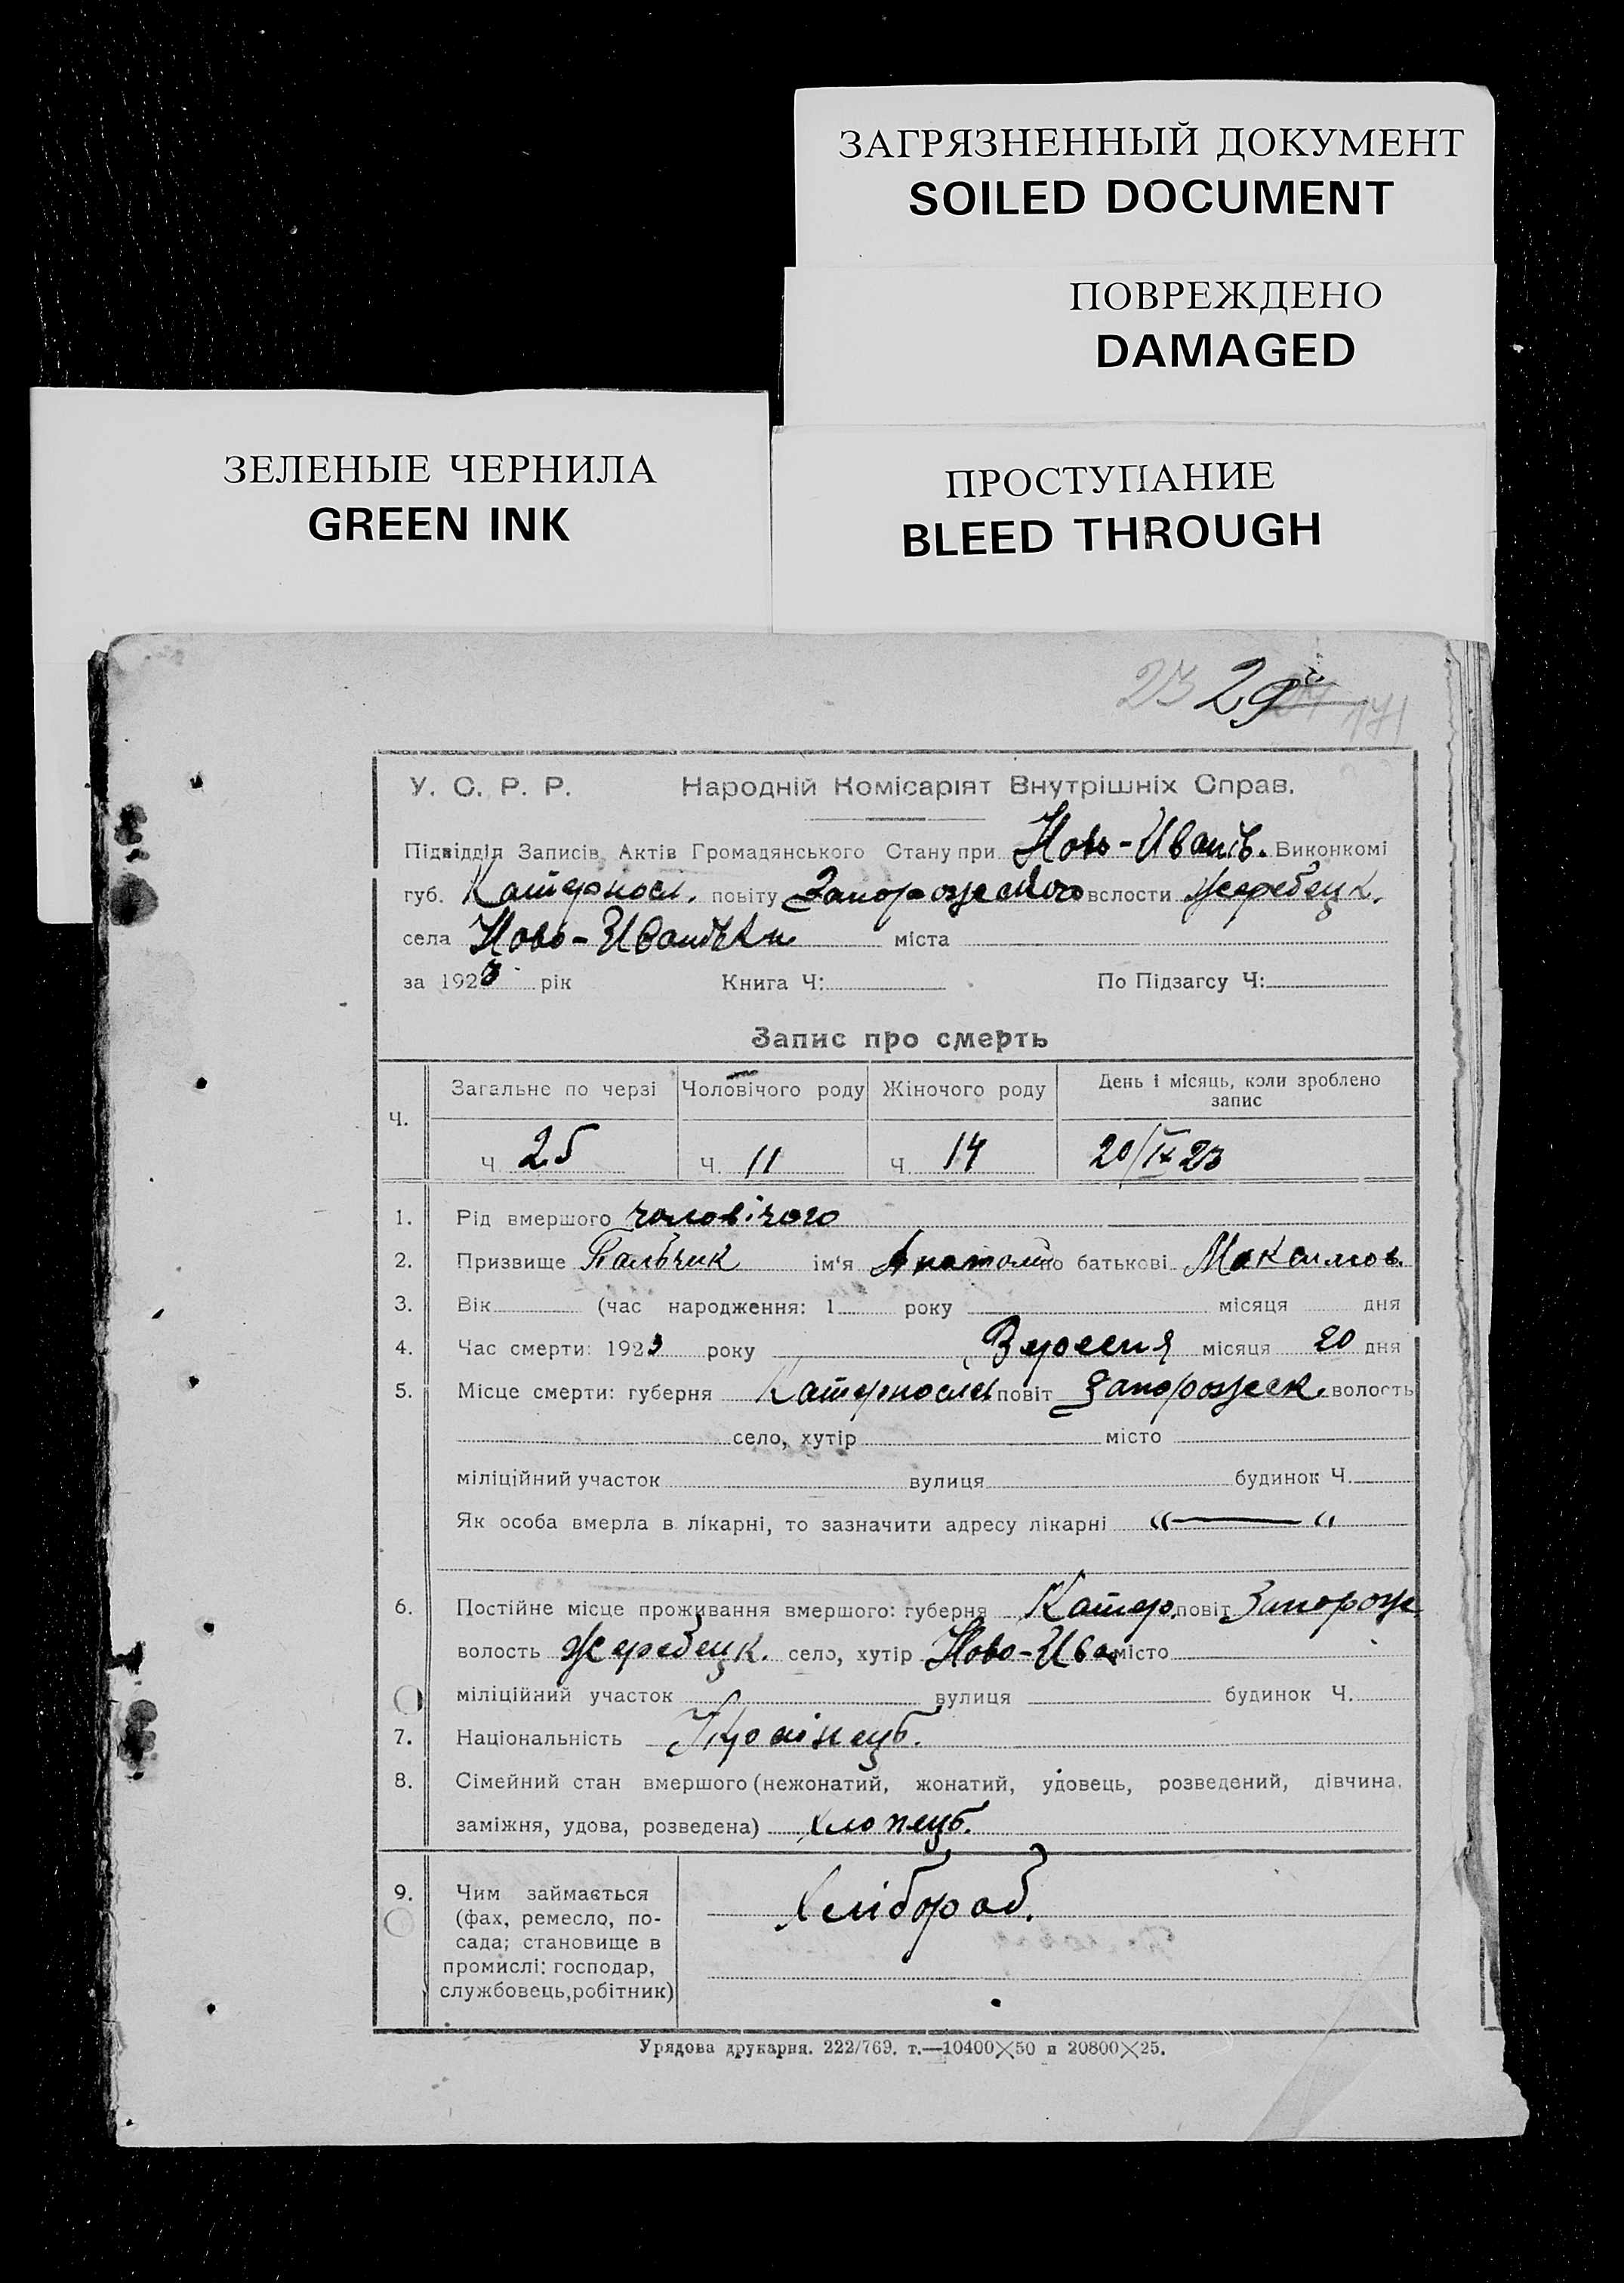 ЗАГРЯЗНЕННЫЙ ДОКУМЕНТ
SOILED DOCUMENT
ПОВРЕЖДЕНО
DAMAGED
ЗЕЛЕНЫЕ ЧЕРНИЛА
GREEN INK
ПРОСТУПАНИЕ
BLEED THROUGH
23 29
У. С. Р. Р. Народній Комісаріят Внутрішніх Справ.
Підвідділ Записів Актів Громадянського Стану при Ново-Иванів. Виконкомі
губ. Катернosл. повіту Запорожского вслости Жеребецк.
села Ново-Иванівки міста
за 1923 рік Книга Ч: По Підзагсу Ч:
Запис про смерть
Ч. Загальне по черзі Чоловічого роду Жіночого роду День і місяць, коли зроблено запис
Ч 25 Ч. 11 Ч 14 20/IX 23
1. Рід вмершого чоловічого
2. Призвище Пальчик ім'я Анатолій по батькові Максимов.
3. Вік (час народження: 1 року місяця дня
4. Час смерти: 1923 року Вересня місяця 20 дня
5. Місце смерти: губерня Катернослав повіт Запорожск. волость
село, хутір місто
міліційний участок вулиця будинок Ч.
Як особа вмерла в лікарні, то зазначити адресу лікарні "—"
6. Постійне місце проживання вмершого: губерня Катер. повіт Запорож
волость Жеребецк. село, хутір Ново-Ива місто
міліційний участок вулиця будинок Ч.
7. Національність Українець.
8. Сімейний стан вмершого (нежонатий, жонатий, удовець, розведений, дівчина,
заміжня, удова, розведена) хлопець.
9. Чим займається Хлібороб.
(фах, ремесло, по-
сада; становище в
промислі: господар,
службовець,робітник)
Урядова друкарня. 222/769. т.—10400×50 и 20800×25.